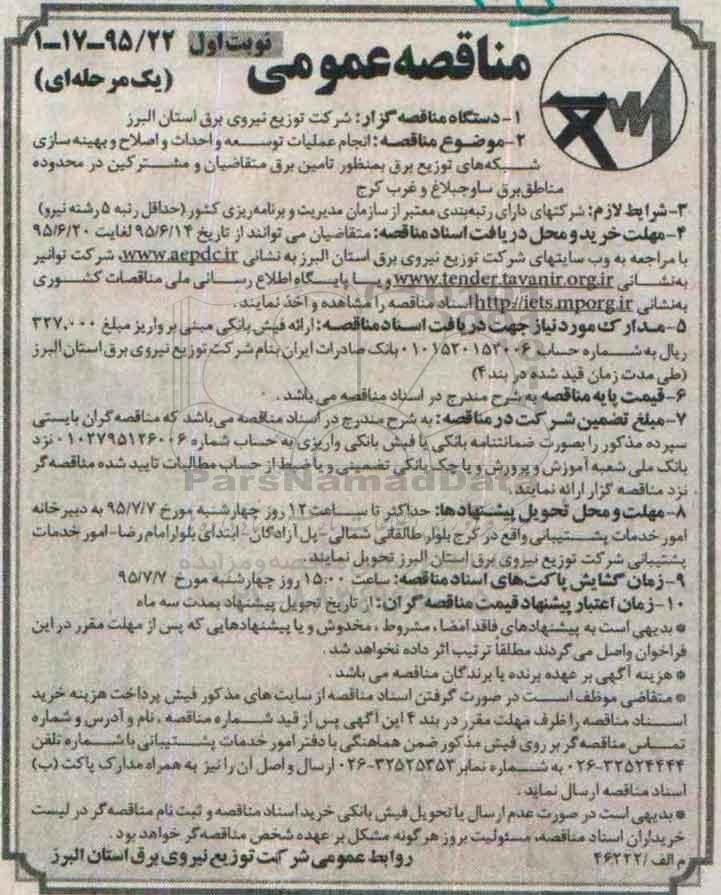 مناقصه عمومی نوبت اول ۹۵/۲۲-۱۷-۱
(یک مرحله‌ای)
۱- دستگاه مناقصه گزار: شرکت توزیع نیروی برق استان البرز
۲- موضوع مناقصه: انجام عملیات توسعه و احداث و اصلاح و بهینه سازی
شبکه‌های توزیع برق بمنظور تامین برق متقاضیان و مشترکین در محدوده
مناطق برق ساوجبلاغ و غرب کرج
۳- شرایط لازم: شرکتهای دارای رتبه‌بندی معتبر از سازمان مدیریت و برنامه‌ریزی کشور (حداقل رتبه ۵ رشته نیرو)
۴- مهلت خرید و محل دریافت اسناد مناقصه: متقاضیان می توانند از تاریخ ۹۵/۶/۱۴ لغایت ۹۵/۶/۲۰
با مراجعه به وب سایتهای شرکت توزیع نیروی برق استان البرز به نشانی www.aepdc.ir، شرکت توانیر
به‌نشانی www.tender.tavanir.org.ir و یا پایگاه اطلاع رسانی ملی مناقصات کشوری
به‌نشانی http://iets.mporg.ir اسناد مناقصه را مشاهده و اخذ نمایند.
۵- مدارک مورد نیاز جهت دریافت اسناد مناقصه: ارائه فیش بانکی مبنی بر واریز مبلغ ۳۲۷,۰۰۰
ریال به شماره حساب ۰۱۰۱۵۲۰۱۵۳۰۰۶ بانک صادرات ایران بنام شرکت توزیع نیروی برق استان البرز
(طی مدت زمان قید شده در بند۴)
۶- قیمت پایه مناقصه به شرح مندرج در اسناد مناقصه می باشد.
۷- مبلغ تضمین شرکت در مناقصه: به شرح مندرج در اسناد مناقصه می‌باشد که مناقصه‌گران بایستی
سپرده مذکور را بصورت ضمانتنامه بانکی یا فیش بانکی واریزی به حساب شماره ۰۱۰۲۷۹۵۱۲۶۰۰۶ نزد
بانک ملی شعبه آموزش و پرورش و یا چک بانکی تضمینی و یا ضبط از حساب مطالبات تایید شده مناقصه‌گر
نزد مناقصه گزار ارائه نمایند.
ParsNamadData
۸- مهلت و محل تحویل پیشنهادها: حداکثر تا ساعت ۱۲ روز چهارشنبه مورخ ۹۵/۷/۷ به دبیرخانه
امور خدمات پشتیبانی واقع در کرج بلوار طالقانی شمالی- پل آزادگان- ابتدای بلوار امام رضا- امور خدمات
پشتیبانی شرکت توزیع نیروی برق استان البرز تحویل نمایند.
۹- زمان گشایش پاکت‌های اسناد مناقصه: ساعت ۱۵:۰۰ روز چهارشنبه مورخ ۹۵/۷/۷
۱۰- زمان اعتبار پیشنهاد قیمت مناقصه گران: از تاریخ تحویل پیشنهاد بمدت سه ماه
* بدیهی است به پیشنهادهای فاقد امضا، مشروط، مخدوش و یا پیشنهادهایی که پس از مهلت مقرر در این
فراخوان واصل می‌گردند مطلقاً ترتیب اثر داده نخواهد شد.
* هزینه آگهی بر عهده برنده یا برندگان مناقصه می باشد.
* متقاضی موظف است در صورت گرفتن اسناد مناقصه از سایت های مذکور فیش پرداخت هزینه خرید
اسناد مناقصه را ظرف مهلت مقرر در بند ۴ این آگهی پس از قید شماره مناقصه، نام و آدرس و شماره
تماس مناقصه‌گر بر روی فیش مذکور ضمن هماهنگی با دفتر امور خدمات پشتیبانی با شماره تلفن
۰۲۶-۳۲۵۲۴۴۴۴ به شماره نمابر ۰۲۶-۳۲۵۲۵۳۵۳ ارسال و اصل آن را نیز به همراه مدارک پاکت (ب)
اسناد مناقصه ارسال نماید.
* بدیهی است در صورت عدم ارسال یا تحویل فیش بانکی خرید اسناد مناقصه و ثبت نام مناقصه‌گر در لیست
خریداران اسناد مناقصه، مسئولیت بروز هرگونه مشکل بر عهده شخص مناقصه‌گر خواهد بود.
م الف /۴۶۲۲۲ روابط عمومی شرکت توزیع نیروی برق استان البرز